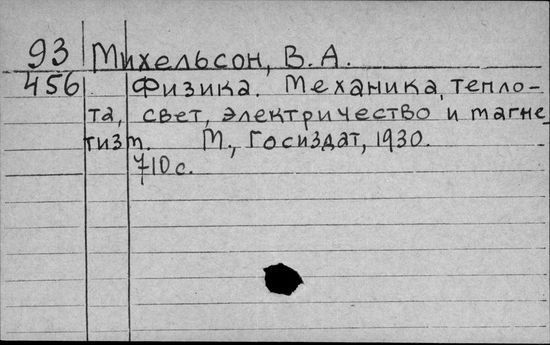 93 Михельсон, В. А.
456 Физика. Механика, тепло-
та, свет, электричество и магне
тизм. М., Госиздат, 1930.
710 с.